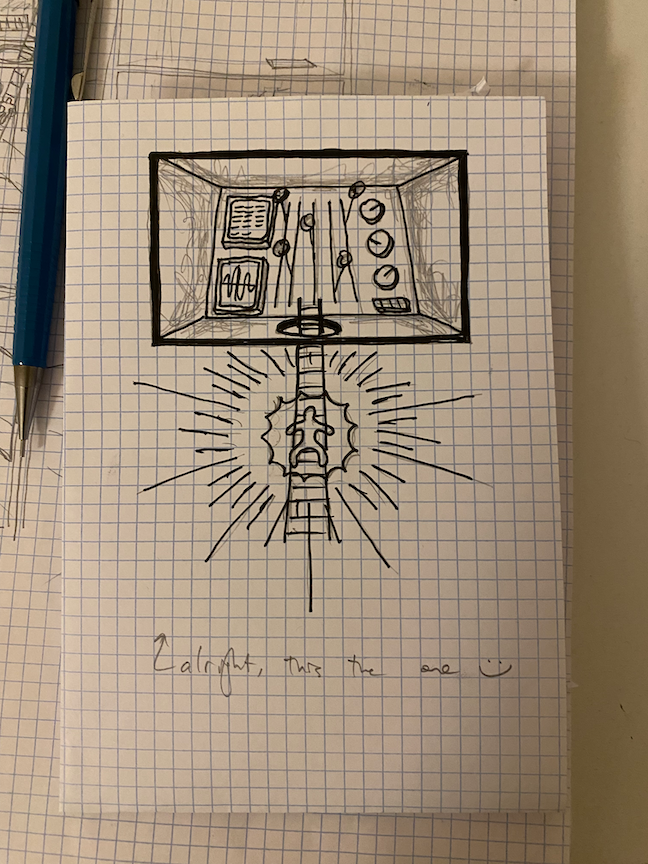 alright, this the one :)